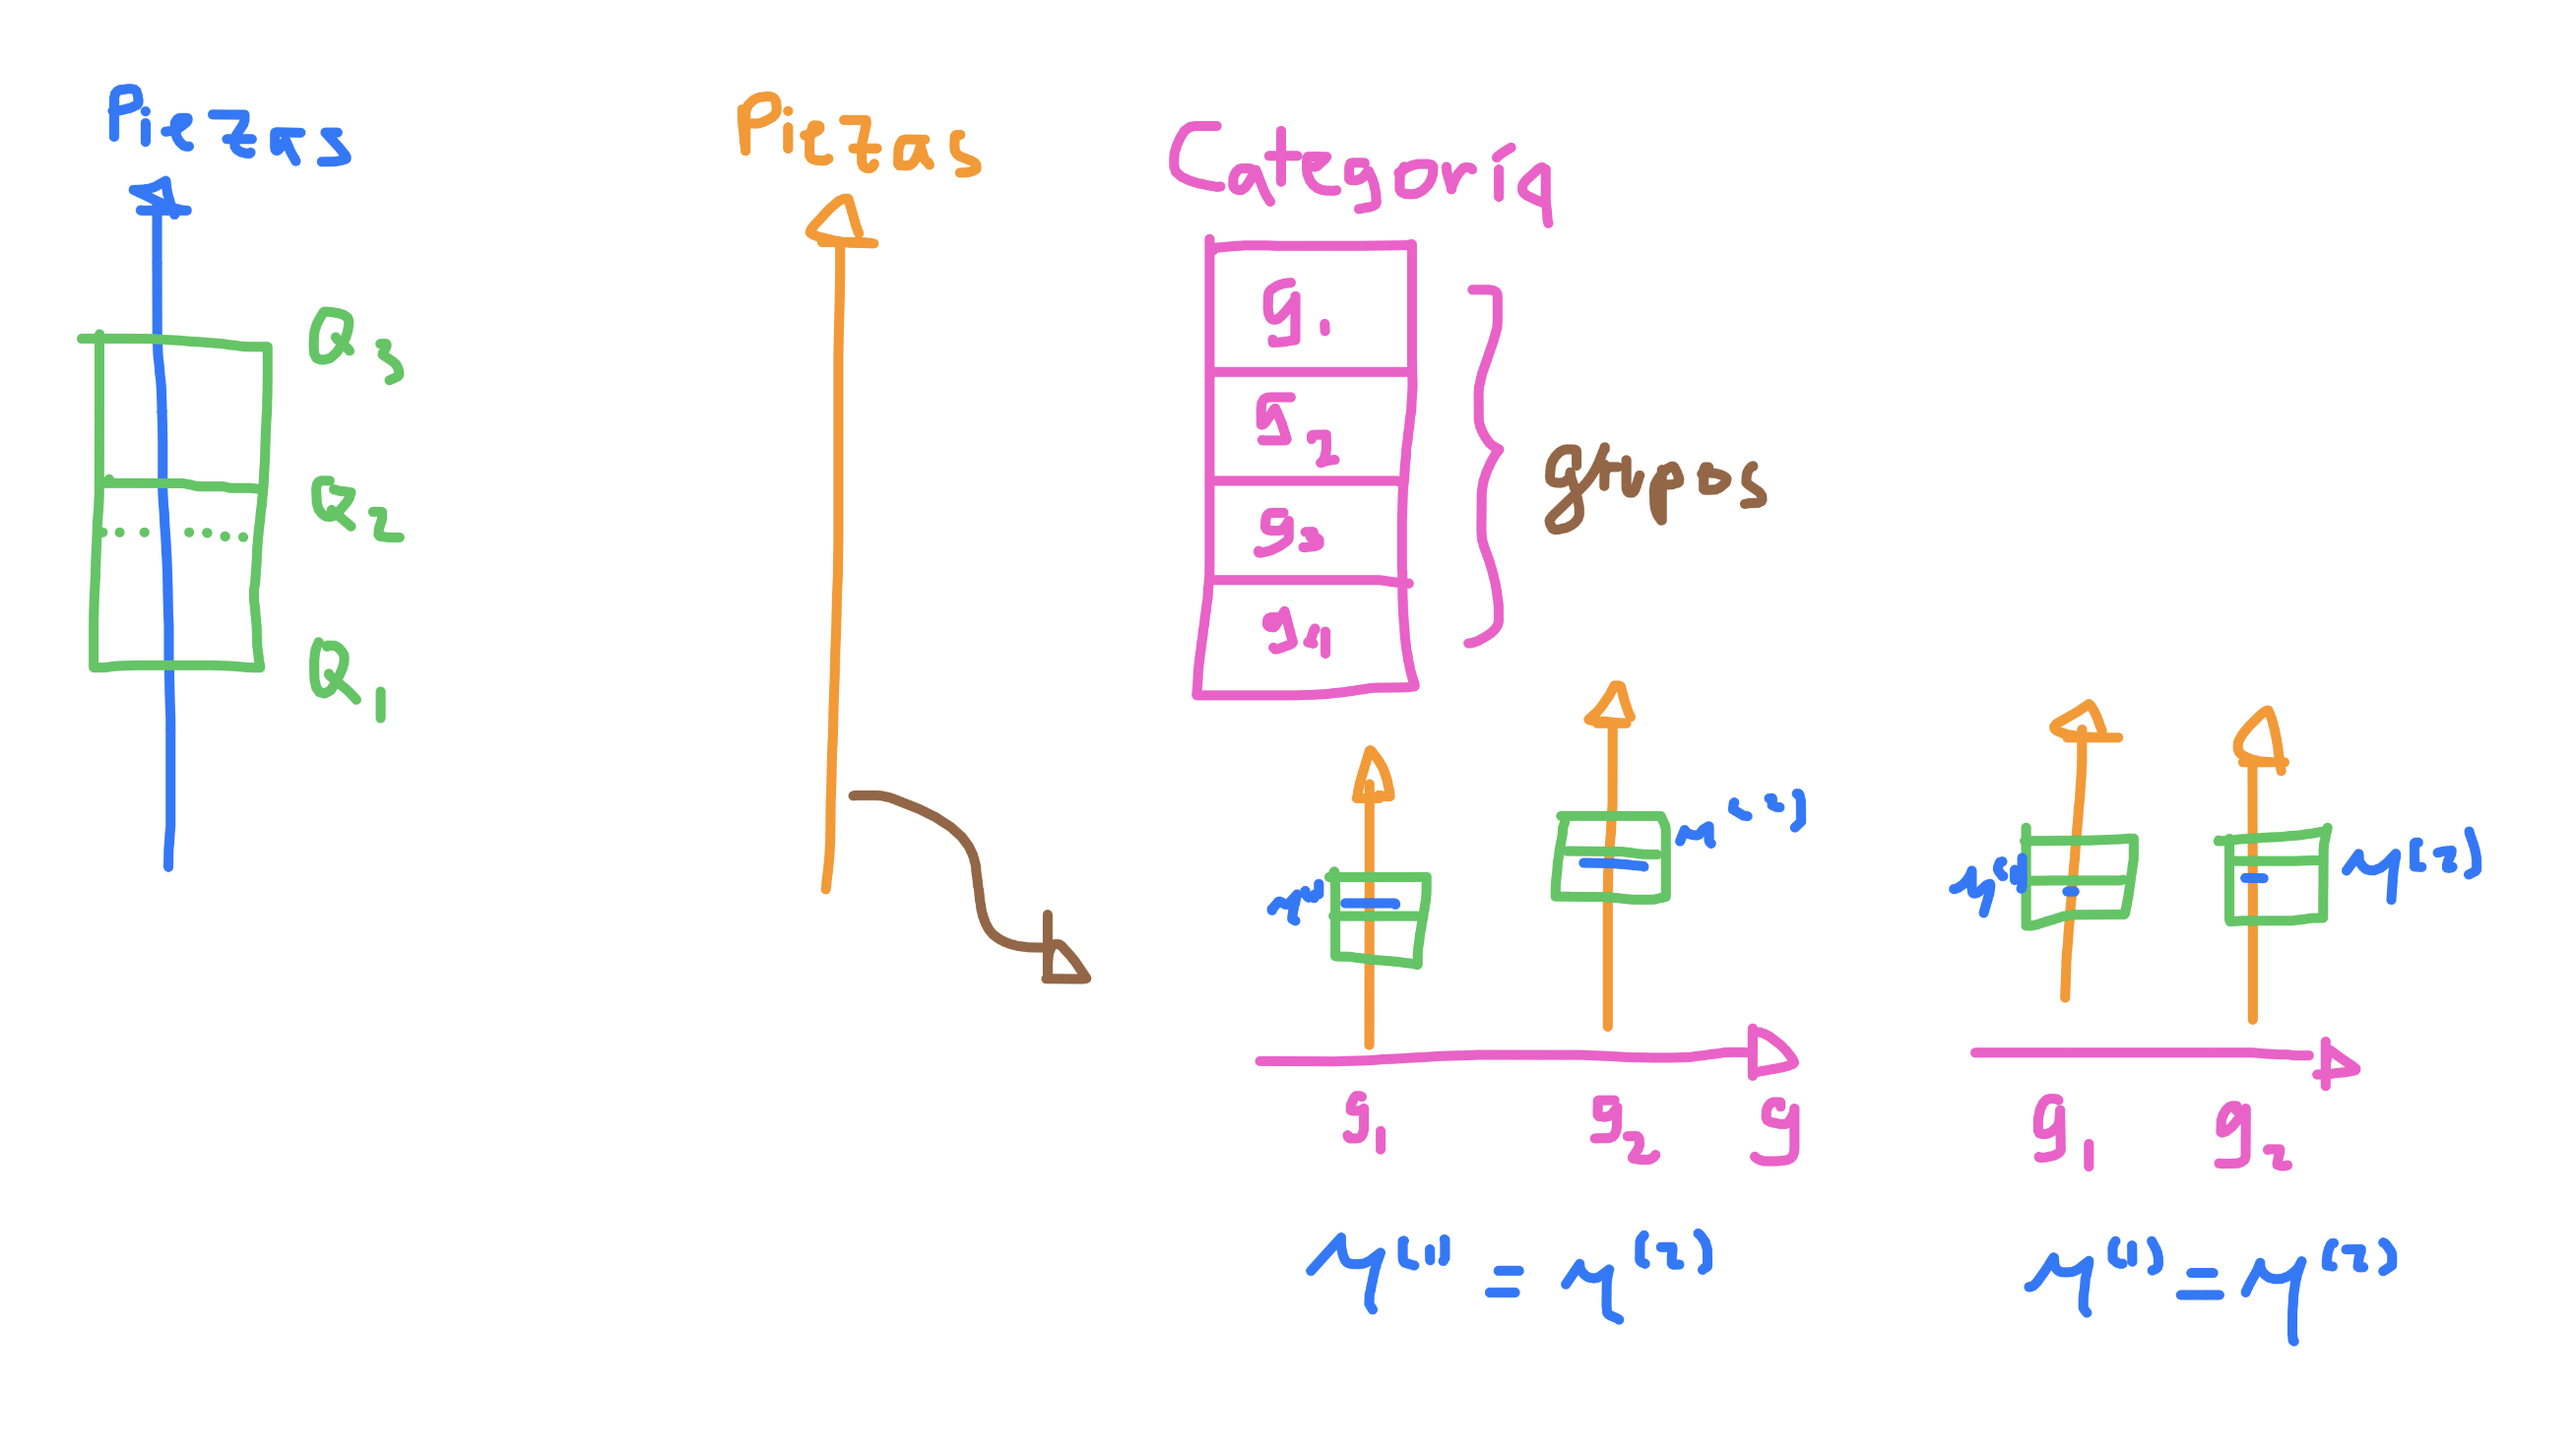 Piezas
Q3
Q2
Q1
Piezas
Categoría
g1
g2
g3
g4
grupos
μ(1)
μ(2)
g1
g2
g
μ(1) = μ(2)
μ(1)
μ(2)
g1
g2
μ(1) = μ(2)